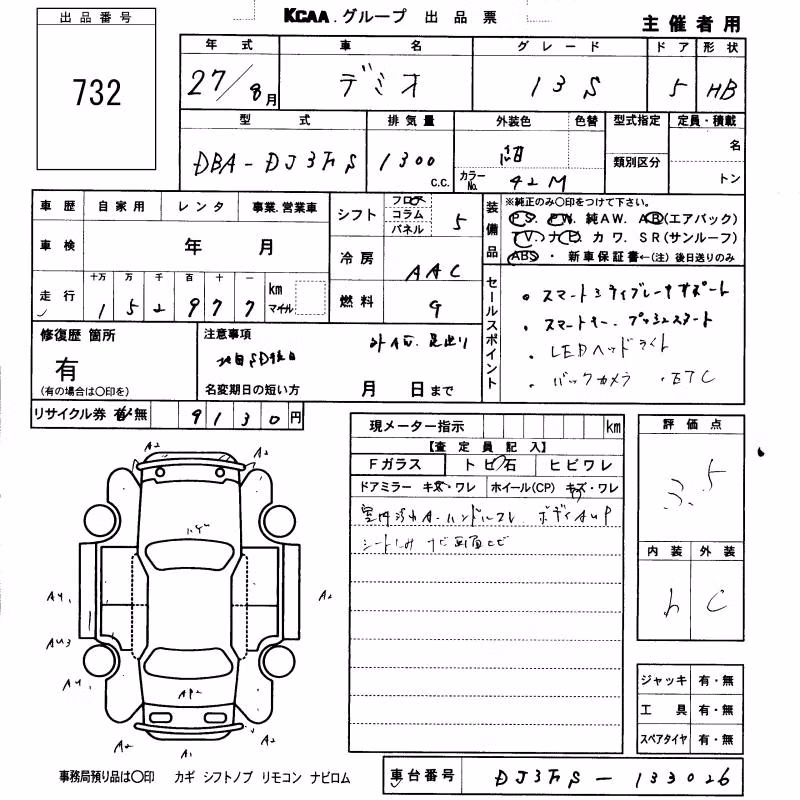 出品番号
732
KCAA.グループ 出品票
主催者用
年式 車名 グレード ドア 形状
27/8月 デミオ 13S 5 HB
型式 排気量 外装色 色替 型式指定 定員・積載
DBA-DJ3FS 1300 C.C. 紺 類別区分 名
カラーNo. 42M トン
車歴 自家用 レンタ 事業.営業車
車検 年 月
走行 十万 万 千 百 十 一
152977 km マイル
シフト フロア コラム パネル 5
冷房 AAC
燃料 G
装備品
※純正のみ○印をつけて下さい。
P.S. P.W. 純AW. AB(エアバック)
TV. ナビ カワ. SR(サンルーフ)
ABS ・ 新車保証書←(注) 後日送りのみ
セールスポイント
・スマート
・スマートキー プッシュスタート
・LEDヘッドライト
・バックカメラ ・ETC
修復歴 箇所
有
(有の場合は○印を)
注意事項
名変期日の短い方 月 日まで
リサイクル券 有 無 9130円
現メーター指示 km
【査定員記入】
Fガラス トビ石 ヒビワレ
ドアミラー キズ・ワレ ホイール(CP) キズ・ワレ
室内汚れA ハンドルスレ ボディAUP
シートしみ ナビ画面ヒビ
評価点
3.5
内装 外装
C
ジャッキ 有・無
工具 有・無
スペアタイヤ 有・無
A2
A2
A4
A2
AU3
A4
AP2
A2
A1
A2
事務局預り品は○印 カギ シフトノブ リモコン ナビロム
車台番号 DJ3FS-133026